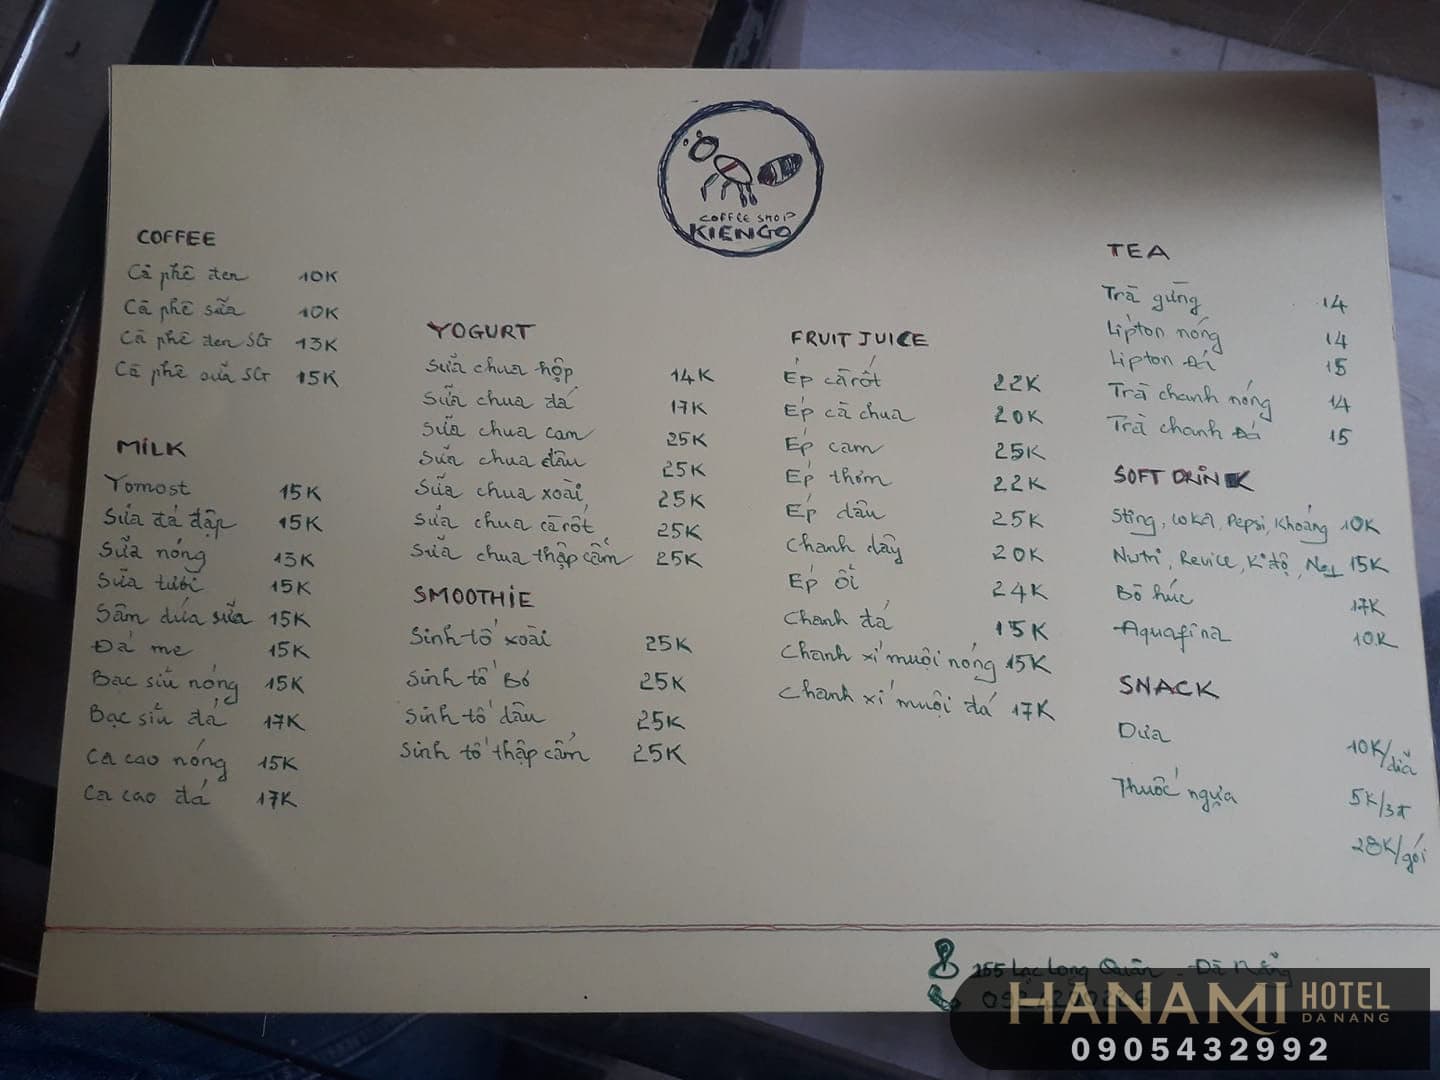 COFFEE SHOP
KIENGO
COFFEE
Cà phê đen 10K
Cà phê sữa 10K
Cà phê đen SG 13K
Cà phê sữa SG 15K
MILK
Yomost 15K
Sữa đá đập 15K
Sữa nóng 13K
Sữa tươi 15K
Sâm dứa sữa 15K
Đá me 15K
Bạc sỉu nóng 15K
Bạc sỉu đá 17K
Ca cao nóng 15K
Ca cao đá 17K
YOGURT
Sữa chua hộp 14K
Sữa chua đá 17K
Sữa chua cam 25K
Sữa chua dâu 25K
Sữa chua xoài 25K
Sữa chua cà rốt 25K
Sữa chua thập cẩm 25K
SMOOTHIE
Sinh tố xoài 25K
Sinh tố Bơ 25K
Sinh tố dâu 25K
Sinh tố thập cẩm 25K
FRUIT JUICE
Ép cà rốt 22K
Ép cà chua 20K
Ép cam 25K
Ép thơm 22K
Ép dâu 25K
Chanh dây 20K
Ép ổi 24K
Chanh đá 15K
Chanh xí muội nóng 15K
Chanh xí muội đá 17K
TEA
Trà gừng 14
Lipton nóng 14
Lipton Đá 15
Trà chanh nóng 14
Trà chanh Đá 15
SOFT DRINK
Sting, Coka, Pepsi, Khoáng 10K
Nutri, Revice, K' độ, 15K
Bò húc 17K
Aquafina 10K
SNACK
Dừa 10K/dĩa
Thuốc ngựa 5K/3đ
28K/gói
155 Lạc Long Quân - Đà Nẵng
HANAMI HOTEL
DA NANG
0905432992